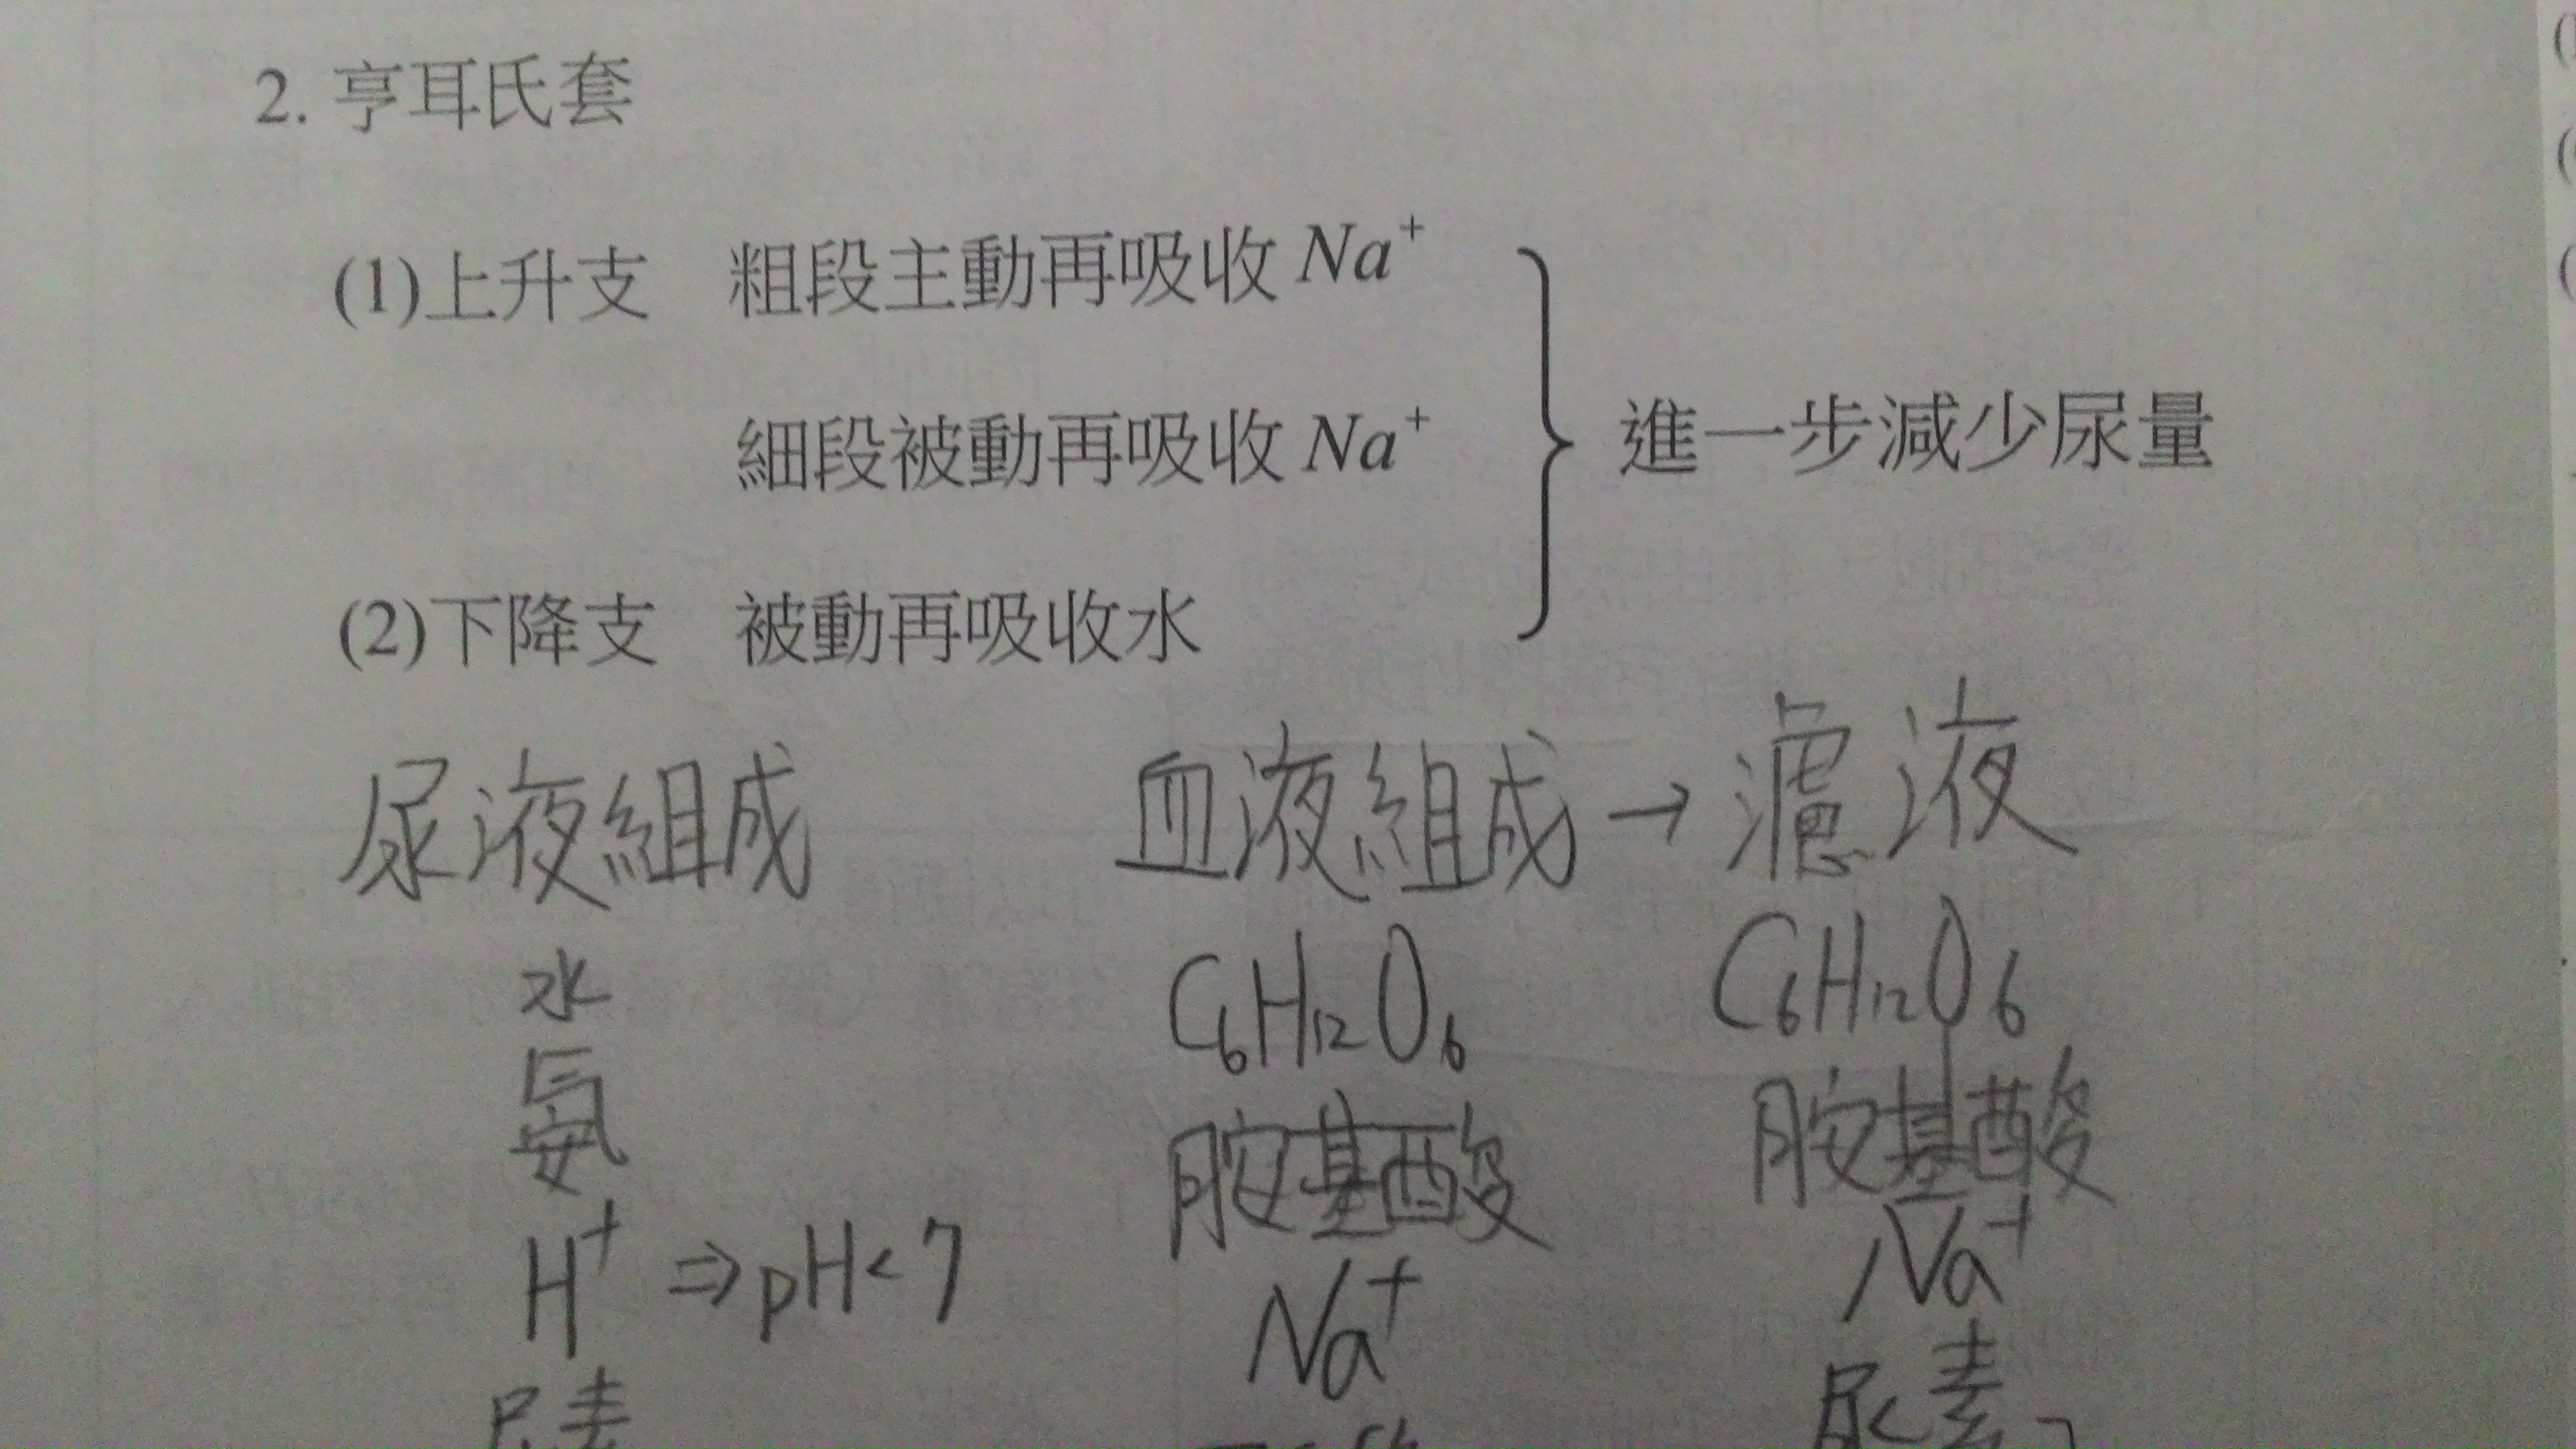 2. 亨耳氏套
(1)上升支 粗段主動再吸收 Na⁺
細段被動再吸收 Na⁺
進一步減少尿量
(2)下降支 被動再吸收水
尿液組成 血液組成 → 濾液
水 C₆H₁₂O₆ C₆H₁₂O₆
氨 胺基酸 胺基酸
H⁺ ⇒ pH < 7 Na⁺ Na⁺
尿素 尿素